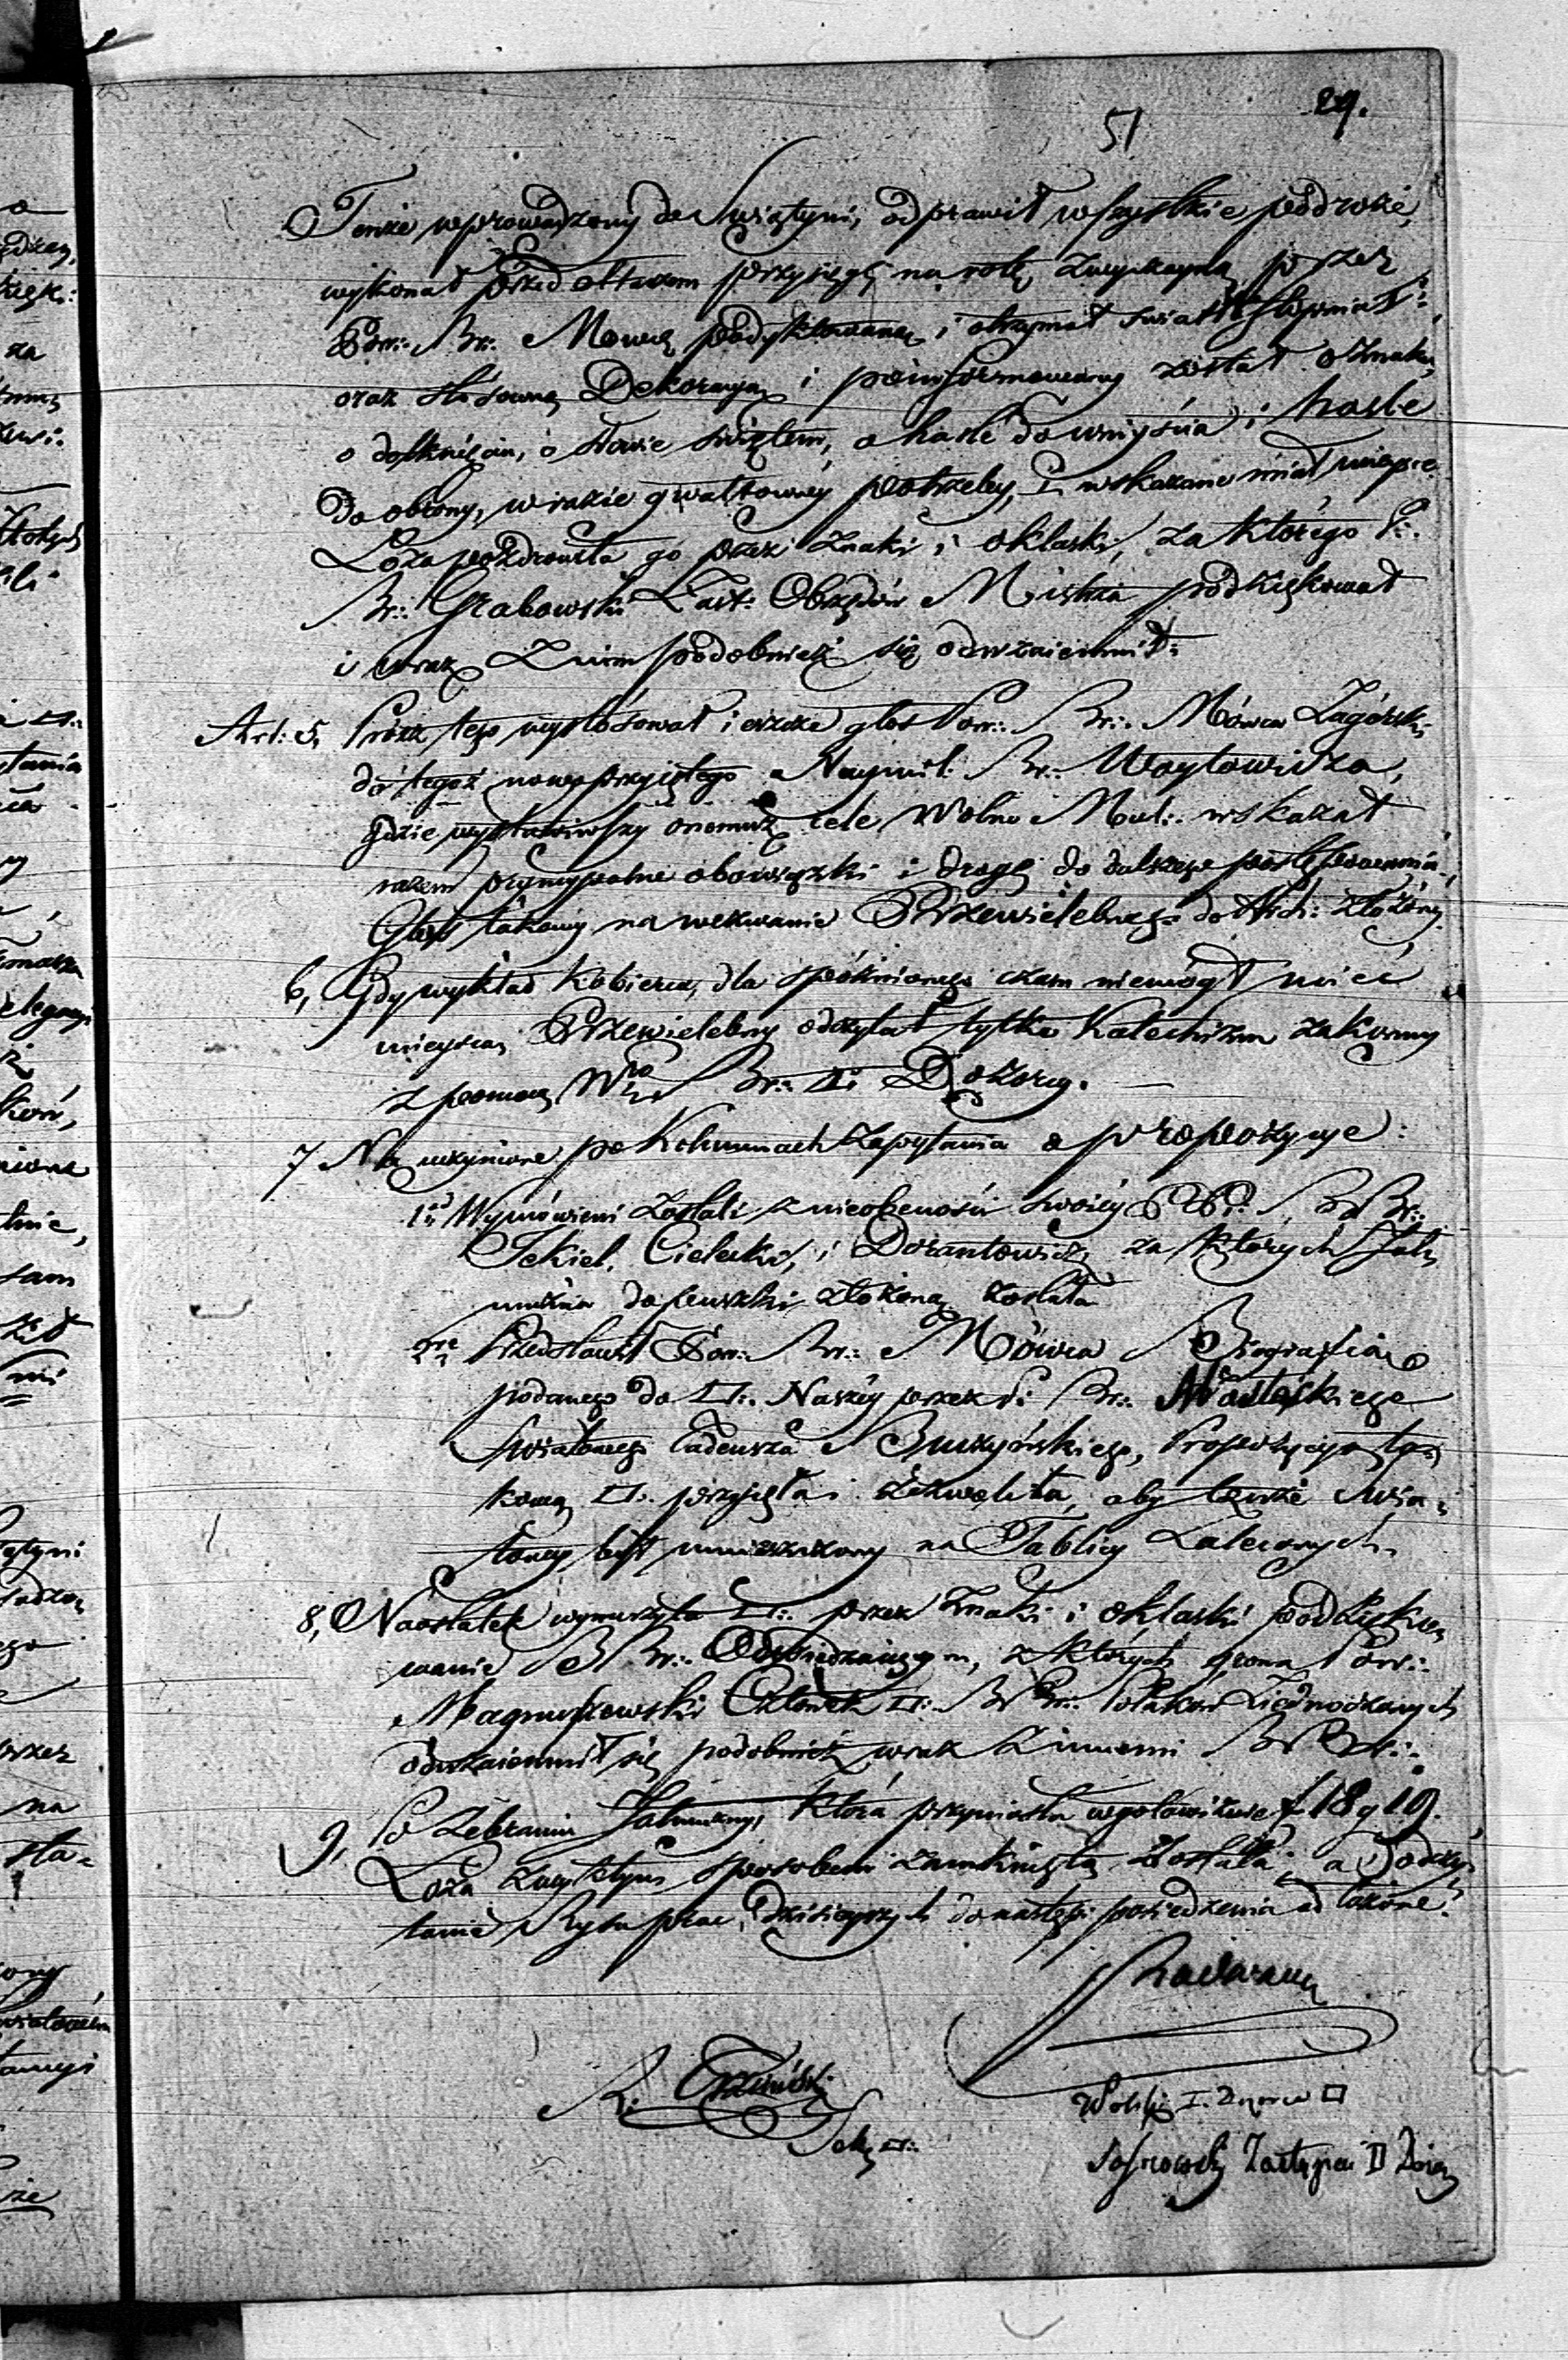 29.
51
Tenże wprowadzony do Swiątyni, odprawił wszystkie podroże,
wykonał przed ołtarzem przysięgę na rotę zwyczayną przez
Prz∴ Br∴ Mowcę podyktowaną, i otrzymał swiatło
oraz stosowną Dekoracyą i poinformowany został o Znaku,
o dotknięciu, o słowie świętem, o haśle do wniyścia i haśle
do obrony, w razie gwałtowney potrzeby, I wskazane miał mieysce.
Loża pozdrowiła go przez znaki i oklaski, za którego P∴
Br∴ Grabowski Zast: Obrzędów Mistrza podziękował
i wraz z nim podobnież się odwzaiemnił:
Art: 5, Prócz tego wystosował ieszcze głos Prz∴ Br∴ Mówca Zagórski
do tegoż nowoprzyiętego Naymil: Br∴ Woytowicza,
gdzie wystawiwszy onemuż cele Wolno Mul∴ wskazał
razem pryncypalne obowiązki i drogę do dalszego postępowania,
Głos takowy na wezwanie Przewielebnego do Arch: złożony.
6, Gdy wykład Kobierca, dla spóźnionego czasu niemógł mieć
mieysca, Przewielebny odczytał tylko Katechizm zakonny
z pomocą Br∴ II Dozorcy. —
7 Na uczynione po Kolumnach Zapytania o propozycye:
1º Wymówieni zostali z nieobecności swoiéy BrBr∴
Jekiel, Cielecki, i Dorantowicz, za których Jał-
mużna do puszki złożoną została
2º Przedstawił Prz∴ Br∴ Mówca Biografią
podanego do □∴ Naszéy przez P∴ Br∴
Swiatowego Tadeusza Buczyńskiego, Propozycyą ta-
kową □∴ przyięła i zezwoliła, aby tenże Swia-
towy był umieszczony na Tablicy Zaleconych.
8, Naostatek wynurzyła □∴ przez Znaki i oklaski podzięko-
wanie BBr∴ Odwiedzaiącym, z których grona Prz∴
Magnuszewski Członek □∴ BBr∴ Polaków Ziednoczonych
odwzaiemnił się podobnież wraz z innemi BBr∴
9, Po Zebraniu Jałmużny, która przyniosła w gotowiźnie f 18 g 19.
Loża zwykłym sposobem zamkniętą została, a Odczy-
tanie Rysu prac dzisieyszych do następ: posiedzenia odłożone.
Radwan
Sek □∴
Wolski I. Dozorca □
Zastępca II Dozor